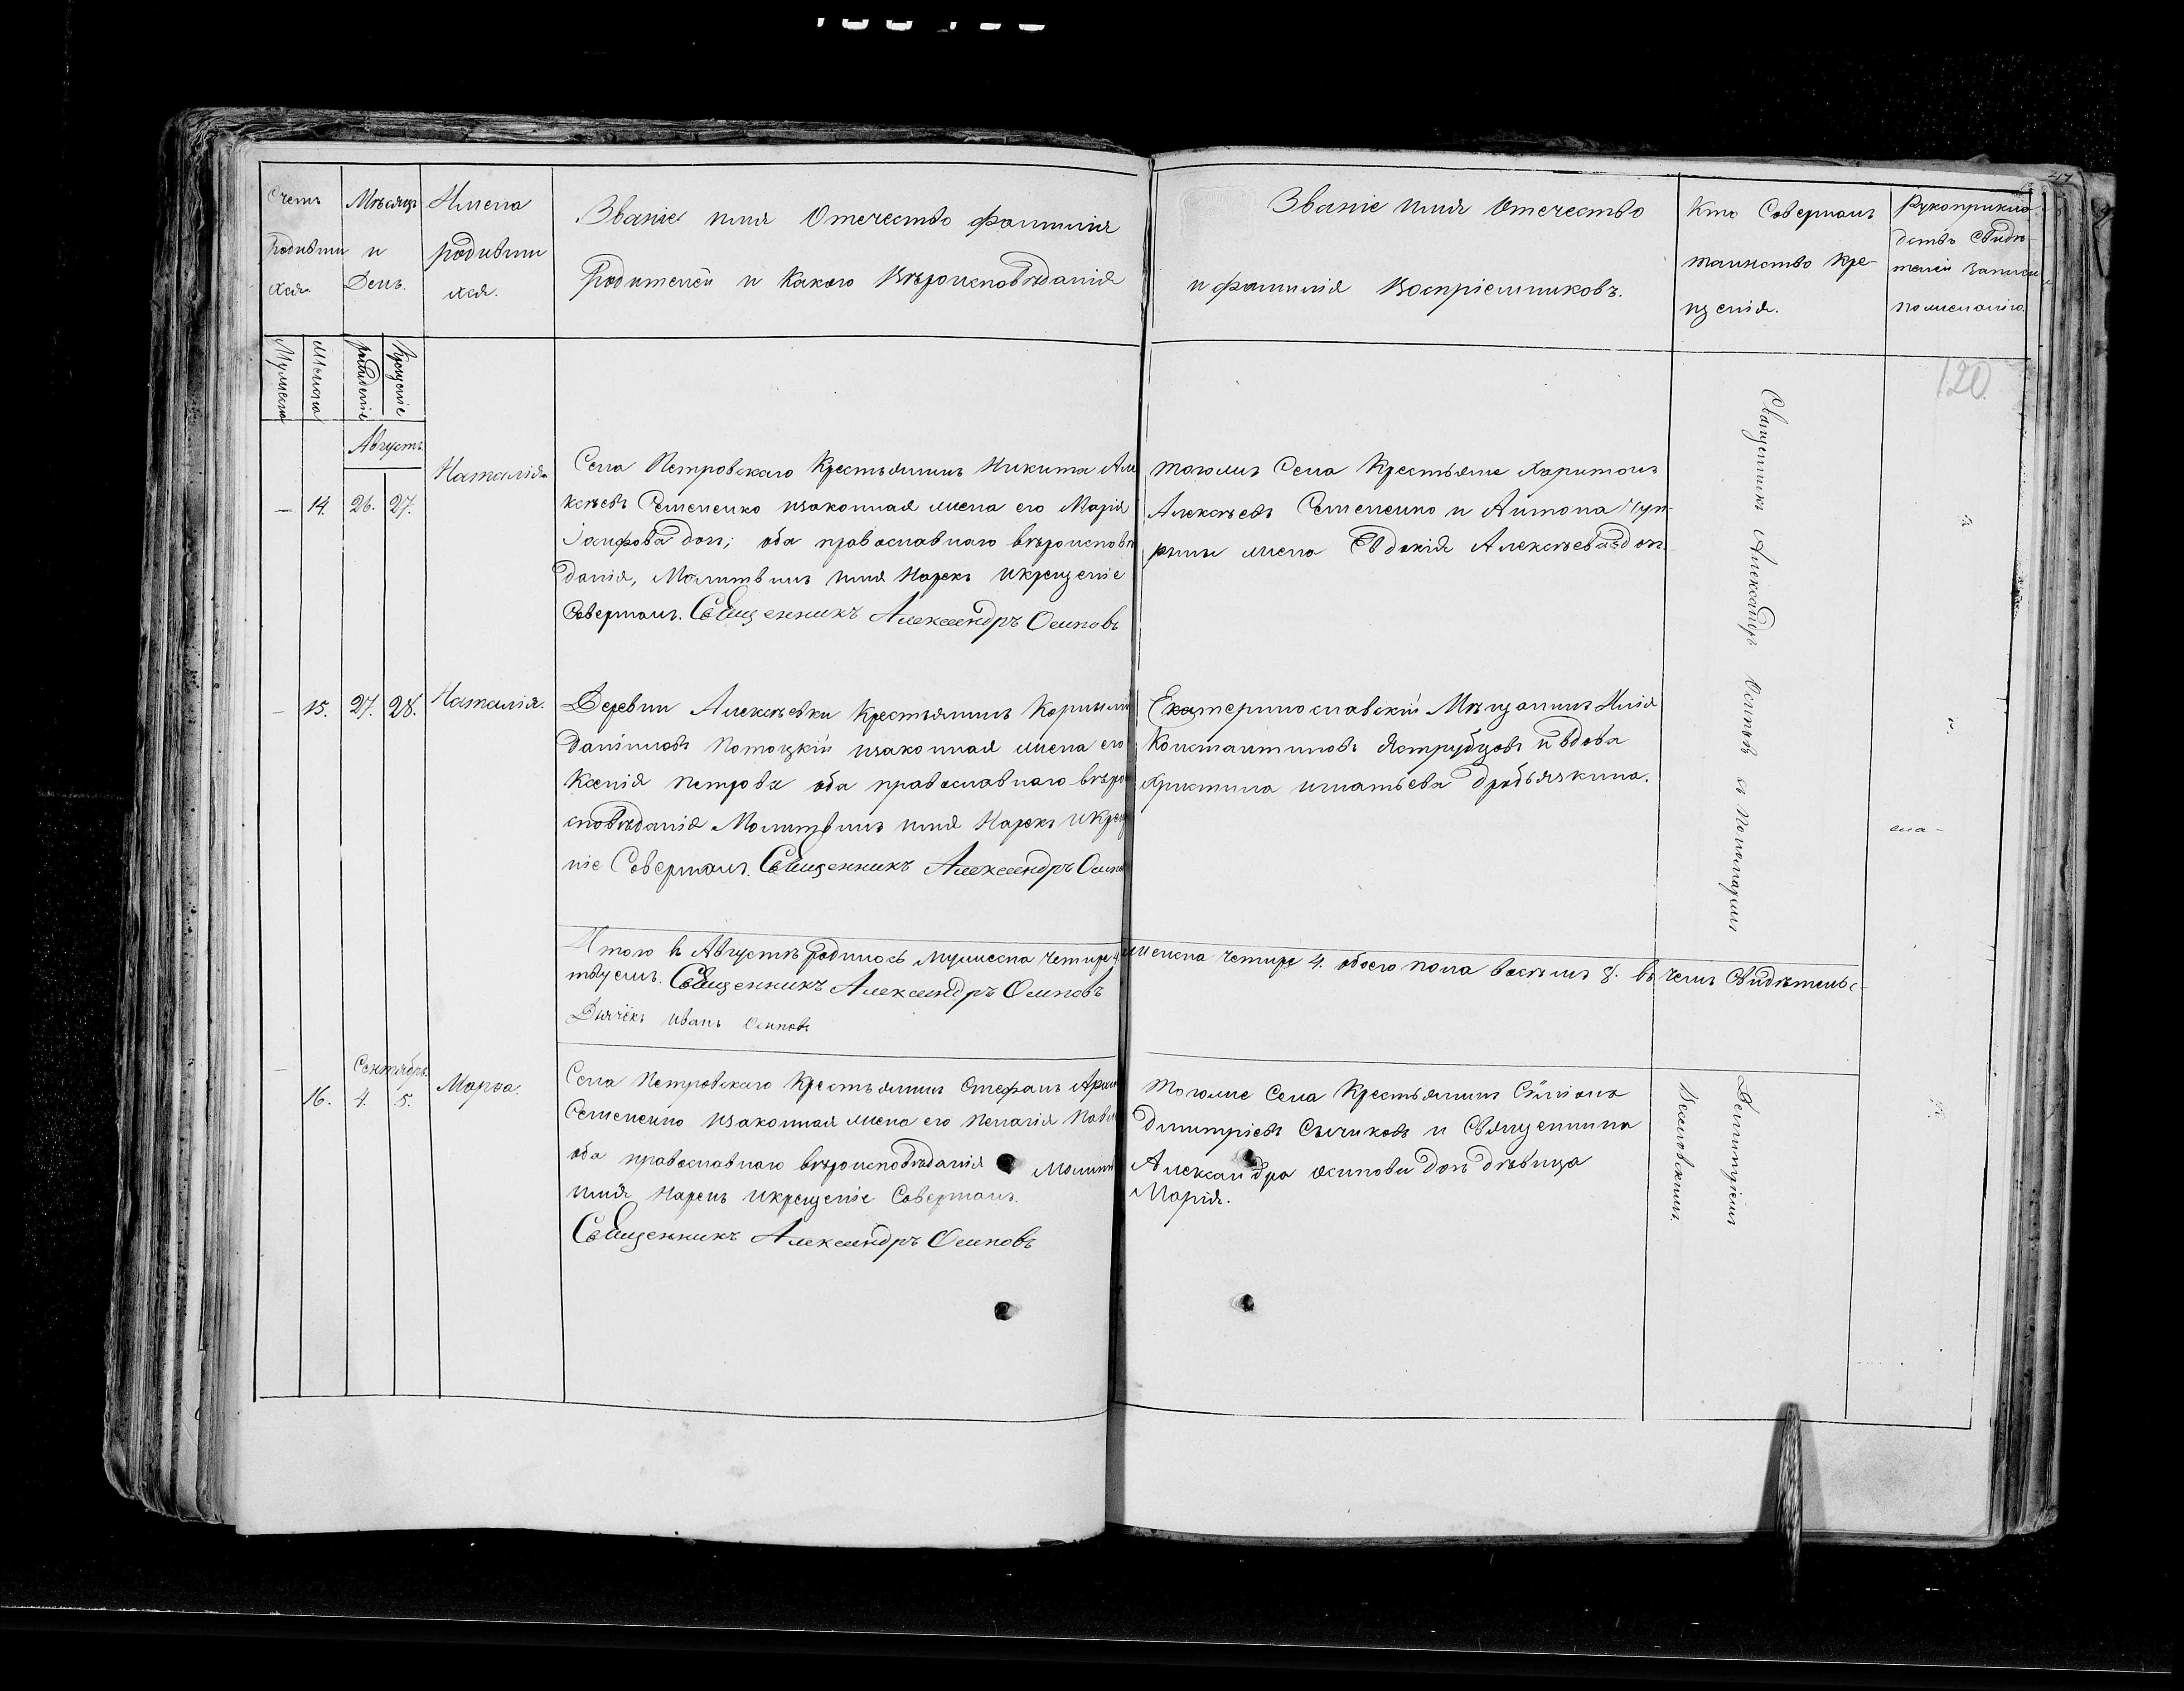 Счетъ
Родивши
хся.
Мѣсяцъ
и
День.
Имена
родивши
хся.
Званіе имя Отечество фамилія
Родителей и Какого Вѣроисповѣданія
Званіе имя Отечество
и фамилія Воспріемниковъ.
Кто Совершалъ
таинство кре-
щенія.
Рукоприкла
дство Свидѣ
телей записи
по желанію.
Мужеска
Женска
рожденіе
Крещеніе
120
Августъ
— 14. 26. 27.
Наталія
Села Петровскаго Крестьянинъ Никита Але
ксѣевъ Семененко изаконная жена его Марія
дочь; оба православнаго вѣроисповѣ
данія, Молитвилъ имя Нарекъ икрещеніе
Совершалъ. Священникъ Александръ Осиповъ
тогожъ Села Крестьяне Харитонъ
Алексѣевъ Семененко и Антона
жена Евдокія Алексѣева дочь
— 15. 27. 28.
Наталія.
Деревни Алексѣевки Крестьянинъ Корнилій
Даніиловъ Потоцкій изаконная жена его
Ксенія Петрова оба православнаго вѣрои
сповѣданія Молитвилъ имя Нарекъ икреще
ніе Совершалъ. Священникъ Александръ Осипов
Екатеринославскій Мѣщанинъ Илія
Константиновъ Яструбцовъ и вдова
Христина игнатьева дробязкина.
Итого в Августѣ родилось мужеска четире 4. женска четире 4. обоего пола восемъ 8. въ чемъ Свидѣтельс-
твуемъ. Священникъ Александръ Осиповъ
Дьячекъ иванъ Осиповъ
Сентябрь.
16. 4. 5.
Марѳа.
Села Петровскаго Крестьянинъ Стефанъ
Семененко изаконная жена его Пелагія Павл
оба православнаго вѣроисповѣданія Молитв
имя Нарекъ икрещеніе Совершалъ.
Священникъ Александръ Осиповъ
тогоже Села Крестьянинъ
Димитріевъ Сычиковъ и Священника
Александра осипова дочь дѣвица
Марія.
Священникъ Александръ Осиповъ съ Пономаремъ
Димитріемъ